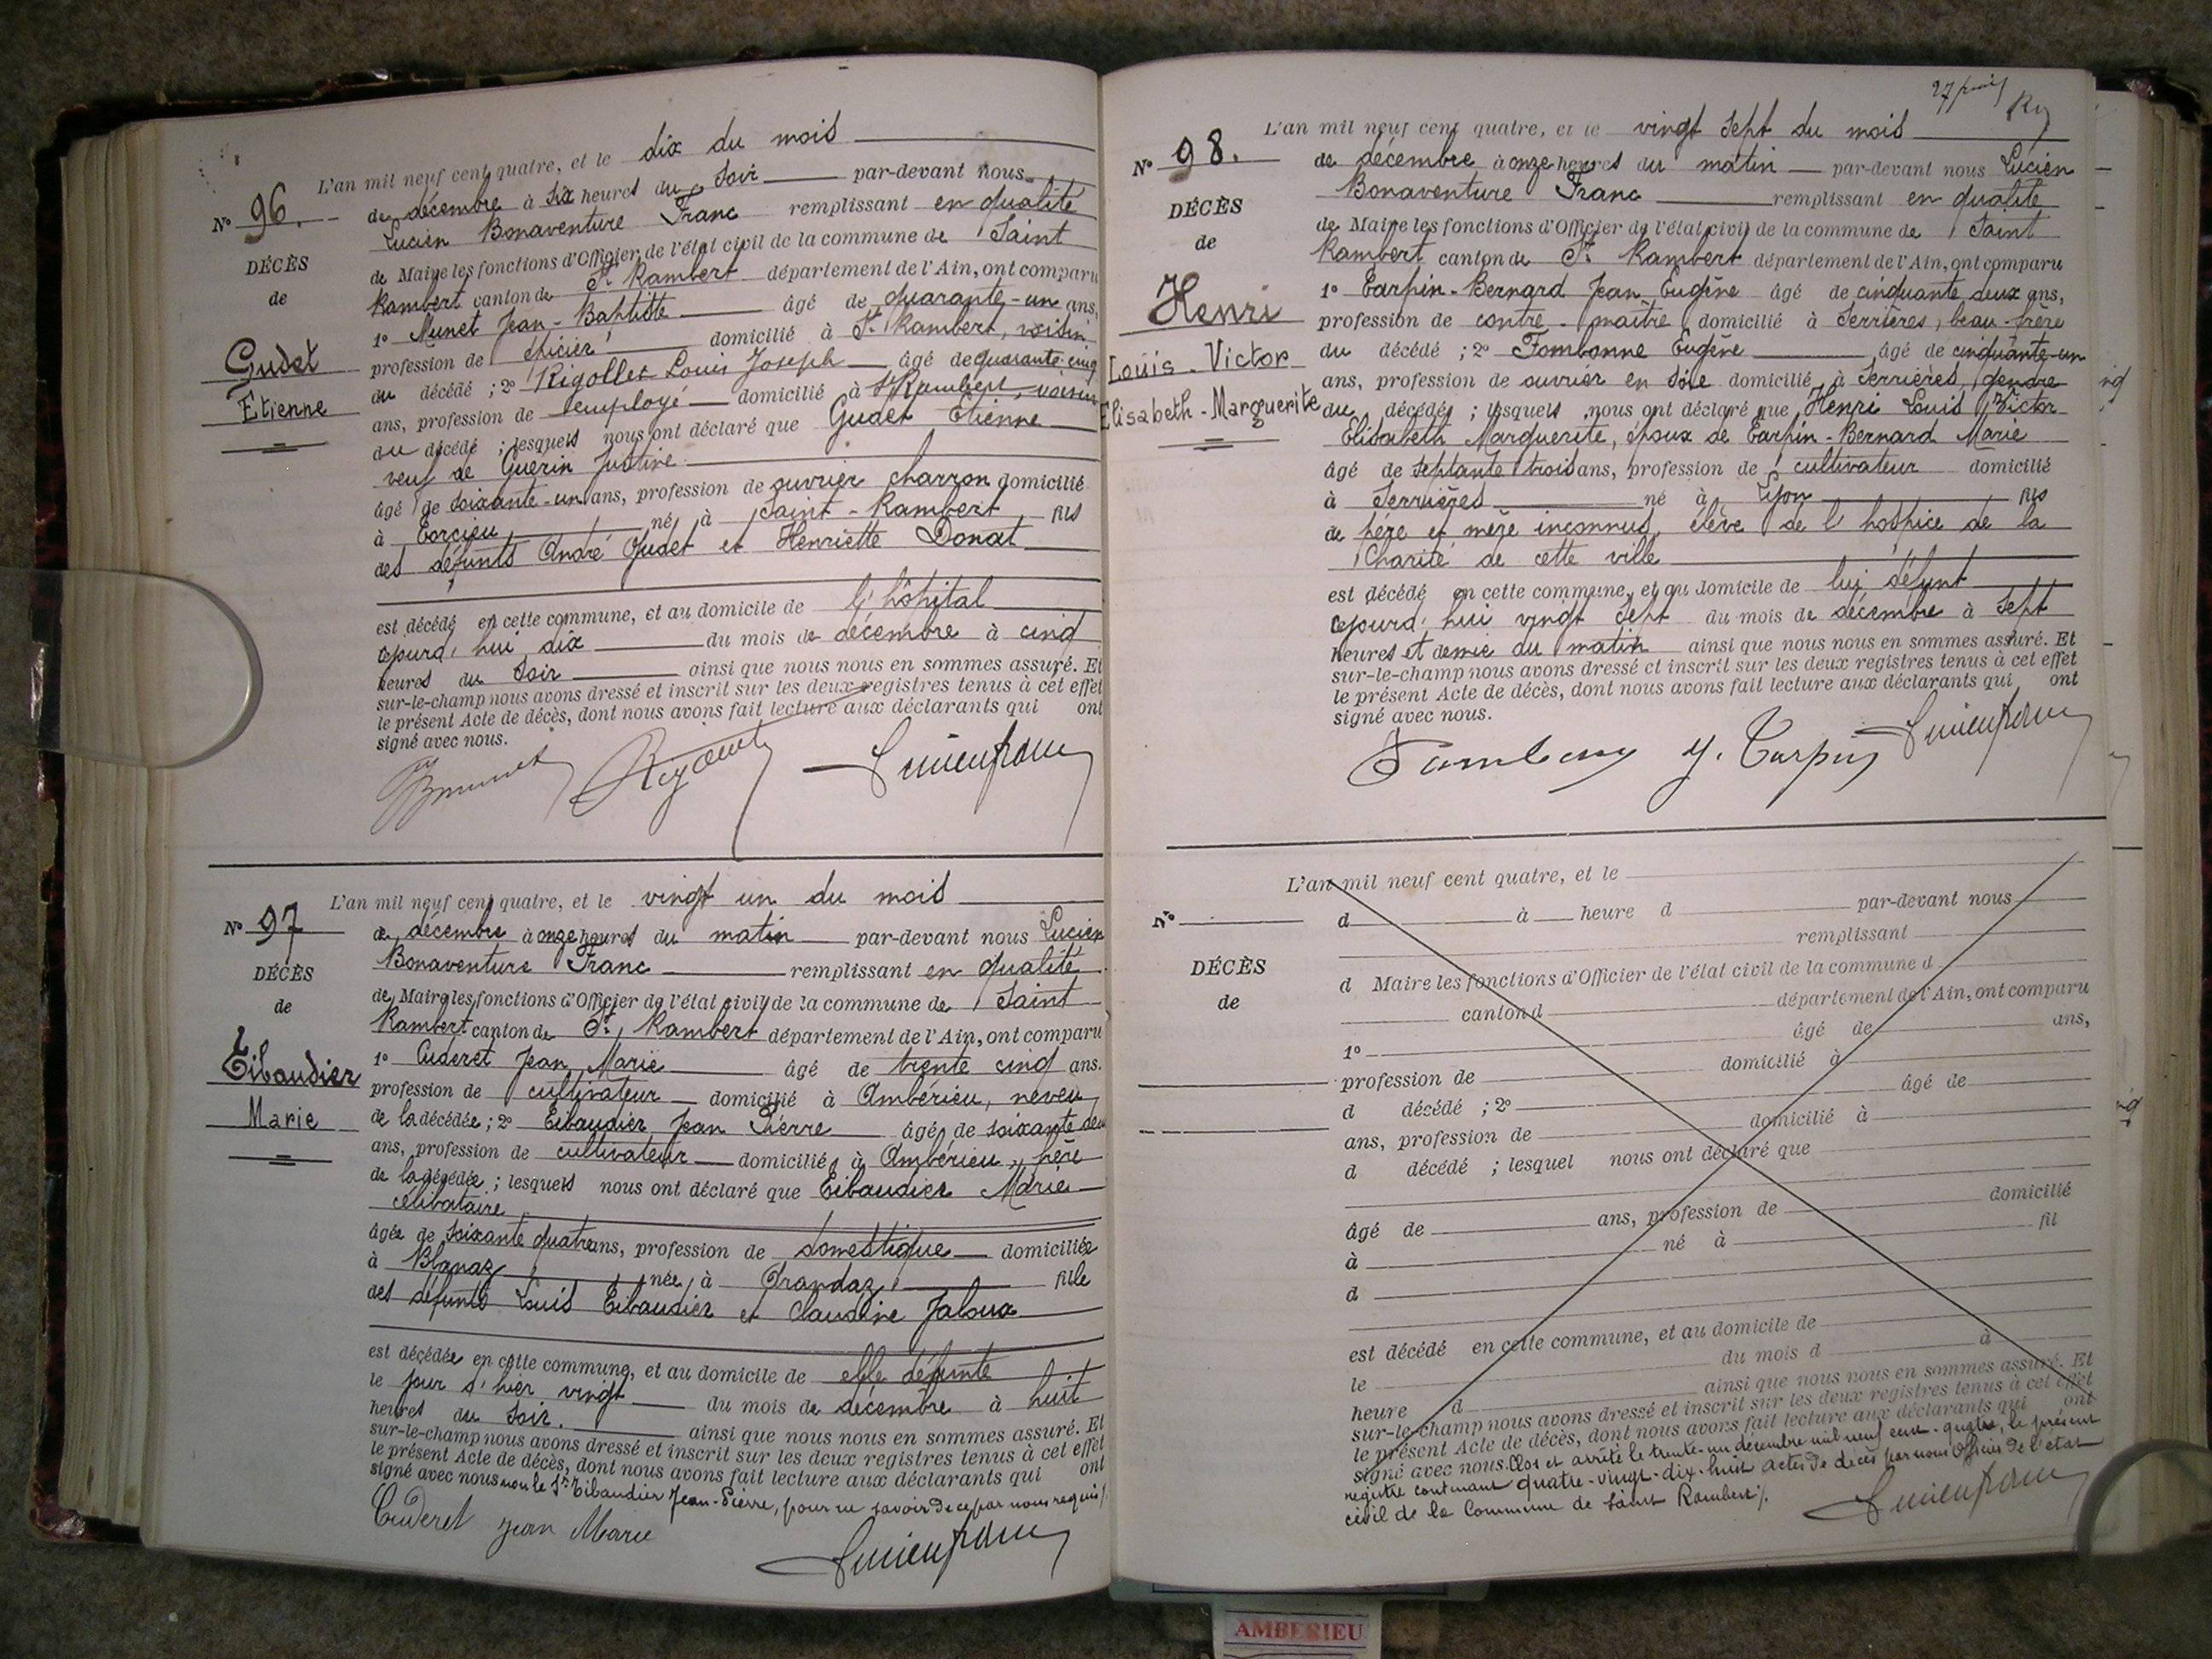 L'an mil neuf cent quatre, et le dix du mois
No 96. de décembre à six heures du soir par-devant nous
DÉCÈS
de
Gudet
Etienne
Lucien Bonaventure Franc remplissant en qualité
de Maire les fonctions d'Officier de l'état civil de la commune de Saint
Rambert canton de St Rambert département de l'Ain, ont comparu
1o Munet Jean-Baptiste âgé de quarante-un ans,
profession de épicier domicilié à St Rambert, voisin
du décédé ; 2o Rigollet Louis Joseph âgé de quarante-cinq
ans, profession de employé domicilié à St Rambert, voisin
du décédé ; lesquels nous ont déclaré que Gudet Etienne
veuf de Guerin Justine
âgé de soixante-un ans, profession de ouvrier charron domicilié
à Torcieu né à Saint-Rambert fils
des défunts André Gudet et Henriette Donat
est décédé en cette commune, et au domicile de l'hôpital
cejourd'hui dix du mois de décembre à cinq
heures du soir ainsi que nous nous en sommes assuré. Et
sur-le-champ nous avons dressé et inscrit sur les deux registres tenus à cet effet
le présent Acte de décès, dont nous avons fait lecture aux déclarants qui ont
signé avec nous.
L'an mil neuf cent quatre, et le vingt un du mois
No 97 de décembre à onze heures du matin par-devant nous Lucien
DÉCÈS
de
Tibaudier
Marie
Bonaventure Franc remplissant en qualité
de Maire les fonctions d'Officier de l'état civil de la commune de Saint
Rambert canton de St Rambert département de l'Ain, ont comparu
1o Cuderet Jean Marie âgé de trente cinq ans.
profession de cultivateur domicilié à Ambérieu, neveu
de la décédée ; 2o Tibaudier Jean Pierre âgé de soixante deux
ans, profession de cultivateur domicilié à Ambérieu, frère
de la décédée ; lesquels nous ont déclaré que Tibaudier Marie
célibataire
âgée de soixante quatre ans, profession de domestique domiciliée
à Blanaz née à Orandaz fille
des défunts Louis Tibaudier et Claudine Jaloux
est décédée en cette commune, et au domicile de elle défunte
le jour d'hier vingt du mois de décembre à huit
heures du soir. ainsi que nous nous en sommes assuré. Et
sur-le-champ nous avons dressé et inscrit sur les deux registres tenus à cet effet
le présent Acte de décès, dont nous avons fait lecture aux déclarants qui ont
signé avec nous non le Sr Tibaudier Jean-Pierre, pour ne savoir de ce par nous requis ./.
Cuderet Jean Marie
Lucien Franc
27
L'an mil neuf cent quatre, et le vingt sept du mois
No 98. de décembre à onze heures du matin par-devant nous Lucien
DÉCÈS
de
Henri
Louis-Victor
Elisabeth-Marguerite
Bonaventure Franc remplissant en qualité
de Maire les fonctions d'Officier de l'état civil de la commune de Saint
Rambert canton de St Rambert département de l'Ain, ont comparu
1o Tarpin-Bernard Jean Eugène âgé de cinquante deux ans,
profession de contre-maître domicilié à Serrières, beau-frère
du décédé ; 2o Fombonne Eugène âgé de cinquante-un
ans, profession de ouvrier en soie domicilié à Serrières, gendre
du décédé ; lesquels nous ont déclaré que Henri Louis Victor
Elisabeth Marguerite, époux de Tarpin-Bernard Marie
âgé de septante trois ans, profession de cultivateur domicilié
à Serrières né à Lyon fils
de père et mère inconnus, élève de l'hospice de la
Charité de cette ville
est décédé en cette commune, et au domicile de lui défunt
cejourd'hui vingt sept du mois de décembre à sept
heures et demie du matin ainsi que nous nous en sommes assuré. Et
sur-le-champ nous avons dressé et inscrit sur les deux registres tenus à cet effet
le présent Acte de décès, dont nous avons fait lecture aux déclarants qui ont
signé avec nous.
Lucien Franc
L'an mil neuf cent quatre, et le
No d à heure d par-devant nous
DÉCÈS
de
remplissant
d Maire les fonctions d'Officier de l'état civil de la commune d
canton d département de l'Ain, ont comparu
1o âgé de ans,
profession de domicilié à
d décédé ; 2o âgé de
ans, profession de domicilié à
d décédé ; lesquel nous ont déclaré que
âgé de ans, profession de domicilié
à né à fil
d
est décédé en cette commune, et au domicile de
le du mois d à
heure d ainsi que nous nous en sommes assuré. Et
sur-le-champ nous avons dressé et inscrit sur les deux registres tenus à cet effet
le présent Acte de décès, dont nous avons fait lecture aux déclarants qui ont
signé avec nous. Clos et arrêté le trente-un décembre mil neuf cent-quatre, le présent
registre contenant quatre-vingt-dix-huit actes de décès par nous Officier de l'état
civil de la Commune de Saint Rambert ./.
Lucien Franc
AMBERIEU